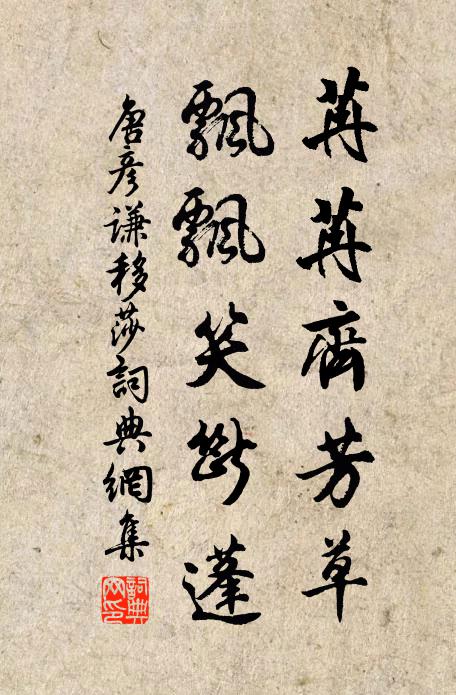 苒苒齊芳草
飄飄笑斷蓬
唐彥謙移莎詞典網集
詞典網印